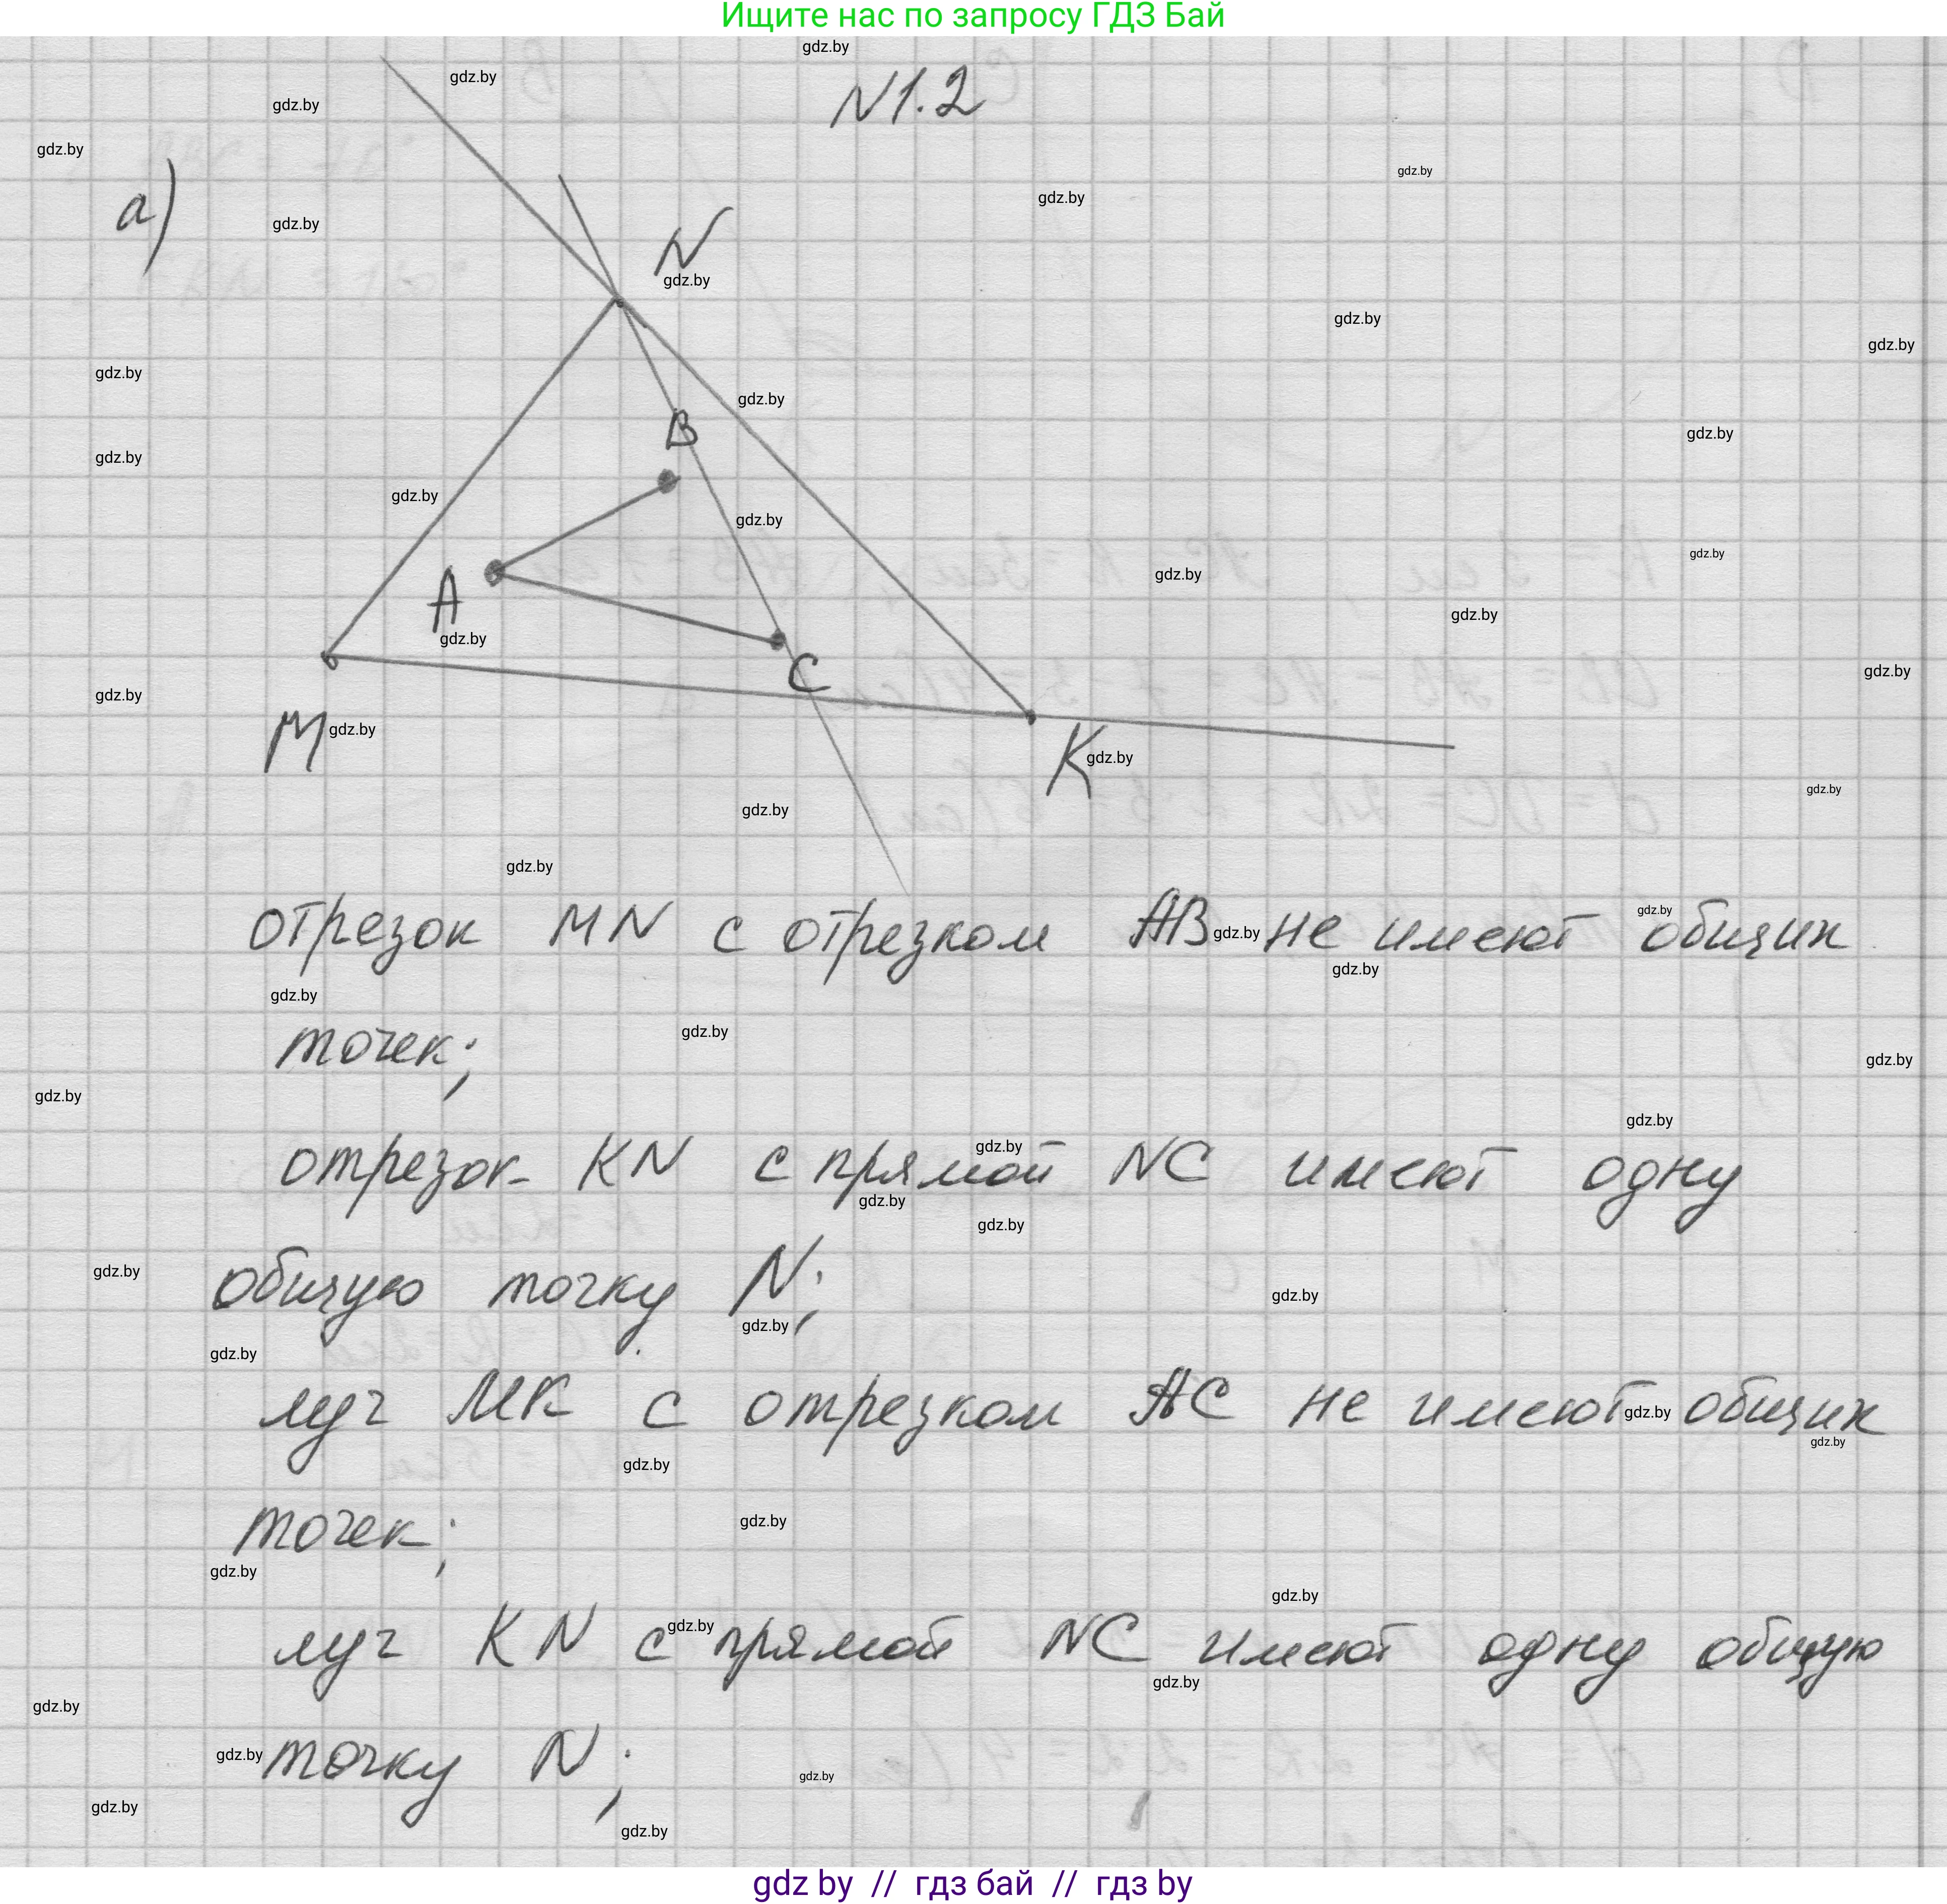 Ищите нас по запросу ГДЗ Бай
N1.2
а)
N
B
A
C
M
K
отрезок MN с отрезком AB не имеют общих
точек;
отрезок KN с прямой NC имеют одну
общую точку N;
луч MK с отрезком AC не имеют общих
точек;
луч KN с прямой NC имеют одну общую
точку N;
gdz by // гдз бай // гдз by